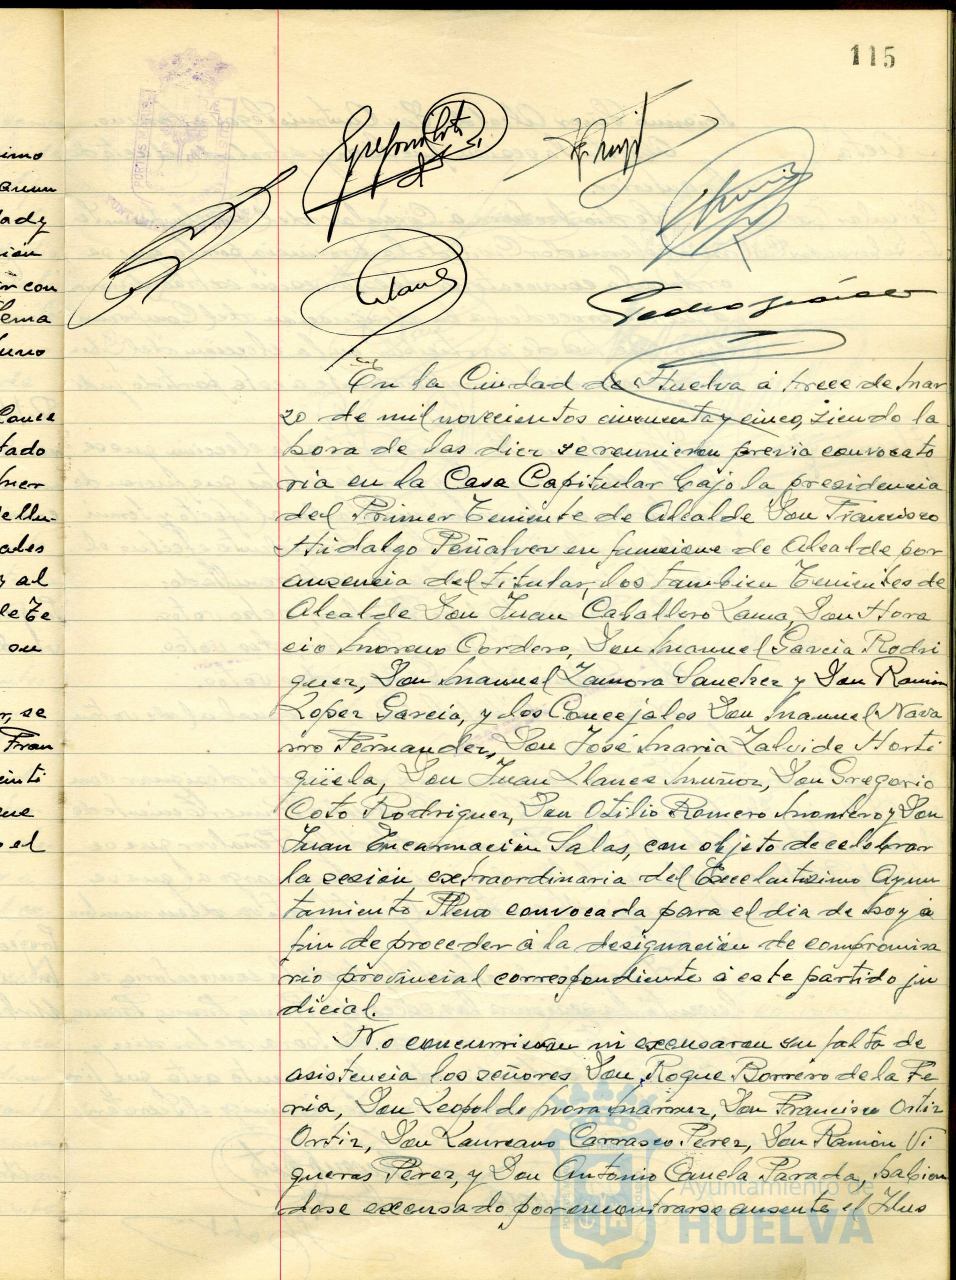 115
imo
ady
ión
con
uno
tado
ales
y al
de Te
su
r, se
Fran
el
PORTUS MARIS
Gregorio Coto
Llanes
Pedro Garcia
En la Ciudad de Huelva á trece de mar
zo de mil novecientos cincuenta y cinco, siendo la
hora de las diez se reunieron previa convocato
ria en la Casa Capitular bajo la presidencia
del Primer Teniente de Alcalde Don Francisco
Hidalgo Peñalver en funcione de Alcalde por
ausencia del titular, los tambien Tenientes de
Alcalde Don Juan Caballero Lama, Don Hora
cio Moreno Cordero, Don Manuel Garcia Rodri
guez, Don Manuel Zamora Sanchez y Don Ramon
Lopez García, y los Concejales Don Manuel Nava
rro Fernandez, Don José Maria Zalvide Horti
güela, Don Juan Llanes Muñoz, Don Gregorio
Coto Rodriguez, Don Otilio Romero Momero y Don
Juan Encarnación Salas, con objeto de celebrar
la sesión extraordinaria del Excelentisimo Ayun
tamiento Pleno convocada para el dia de hoy á
fin de proceder á la designación de compromisa
rio provincial correspondiente á este partido ju
dicial.
No concurrieron ni excusaron su falta de
asistencia los señores Don Roque Borrero de la Fe
ria, Don Leopoldo Mora Marmez, Don Francisco Ortiz
Ortiz, Don Laureano Carrasco Perez, Don Ramón Vi
gueras Pérez, y Don Antonio Canela Parada, habien
dose excusado por encontrarse ausente el Ilus
Ayuntamiento de
HUELVA